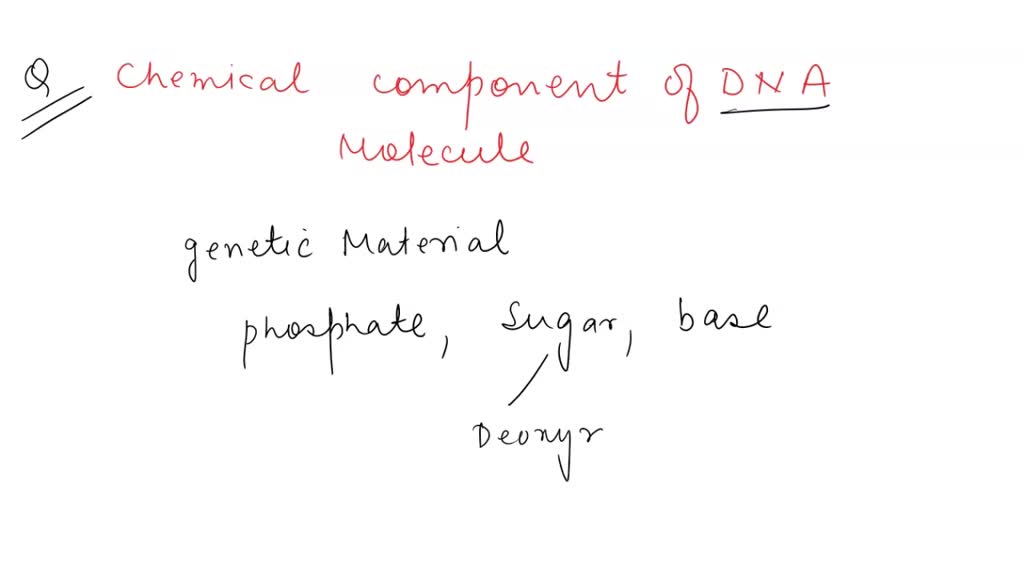 Q Chemical component of DNA
Molecule
genetic Material
phosphate, sugar, base
Deoxyr